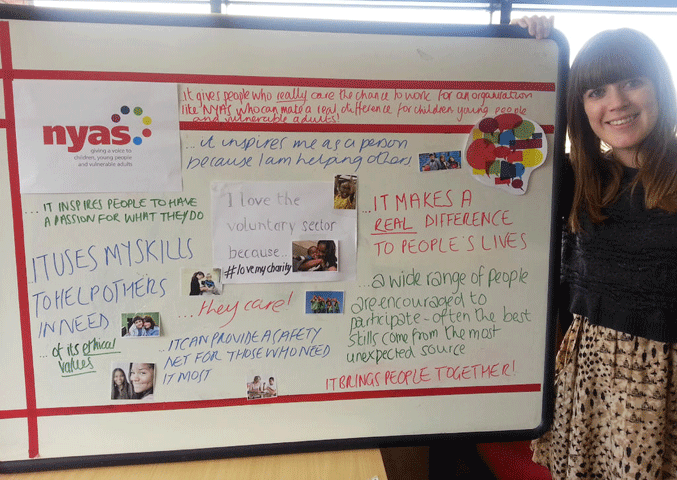 it gives people who really care the chance to work for an organisation
like NYAS who can make a real difference for children young people
and vulnerable adults!
nyas
giving a voice to
children, young people
and vulnerable adults
...it inspires me as a person
because I am helping others
...IT INSPIRES PEOPLE TO HAVE
A PASSION FOR WHAT THEY DO
I love the
voluntary sector
because...
#lovemycharity
...IT MAKES A
REAL DIFFERENCE
TO PEOPLE'S LIVES
...IT USES MY SKILLS
TO HELP OTHERS
IN NEED
...they care!
...a wide range of people
are encouraged to
participate - often the best
skills come from the most
unexpected source
...of its ethical
values
...IT CAN PROVIDE A SAFETY
NET FOR THOSE WHO NEED
IT MOST
IT BRINGS PEOPLE TOGETHER!